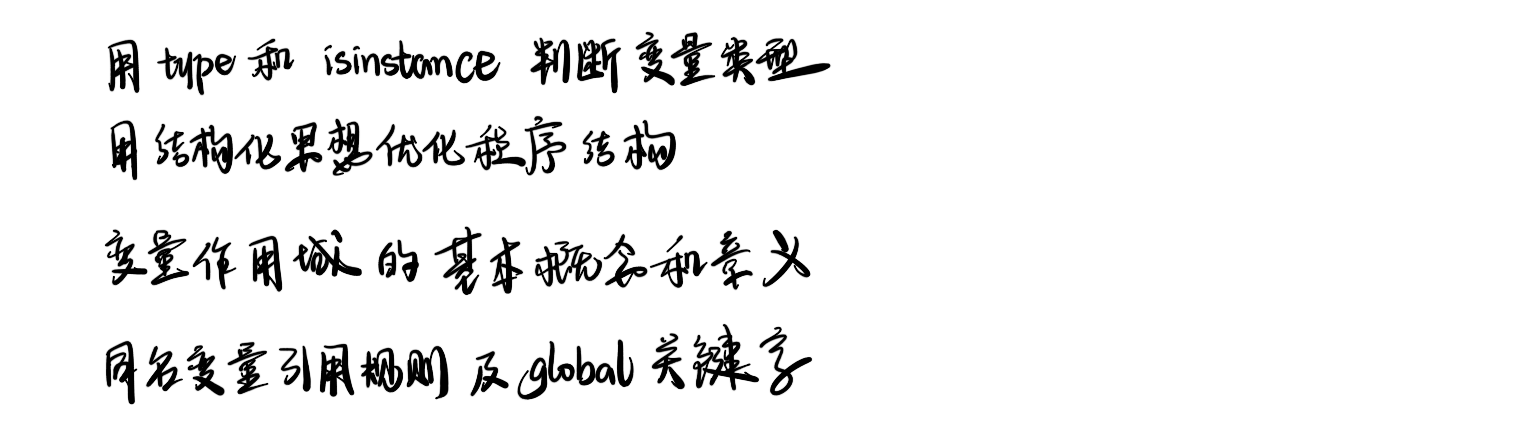 用type和 isinstance 判断变量类型
用结构化思想优化程序结构
变量作用域的基本概念和意义
同名变量引用规则及global关键字